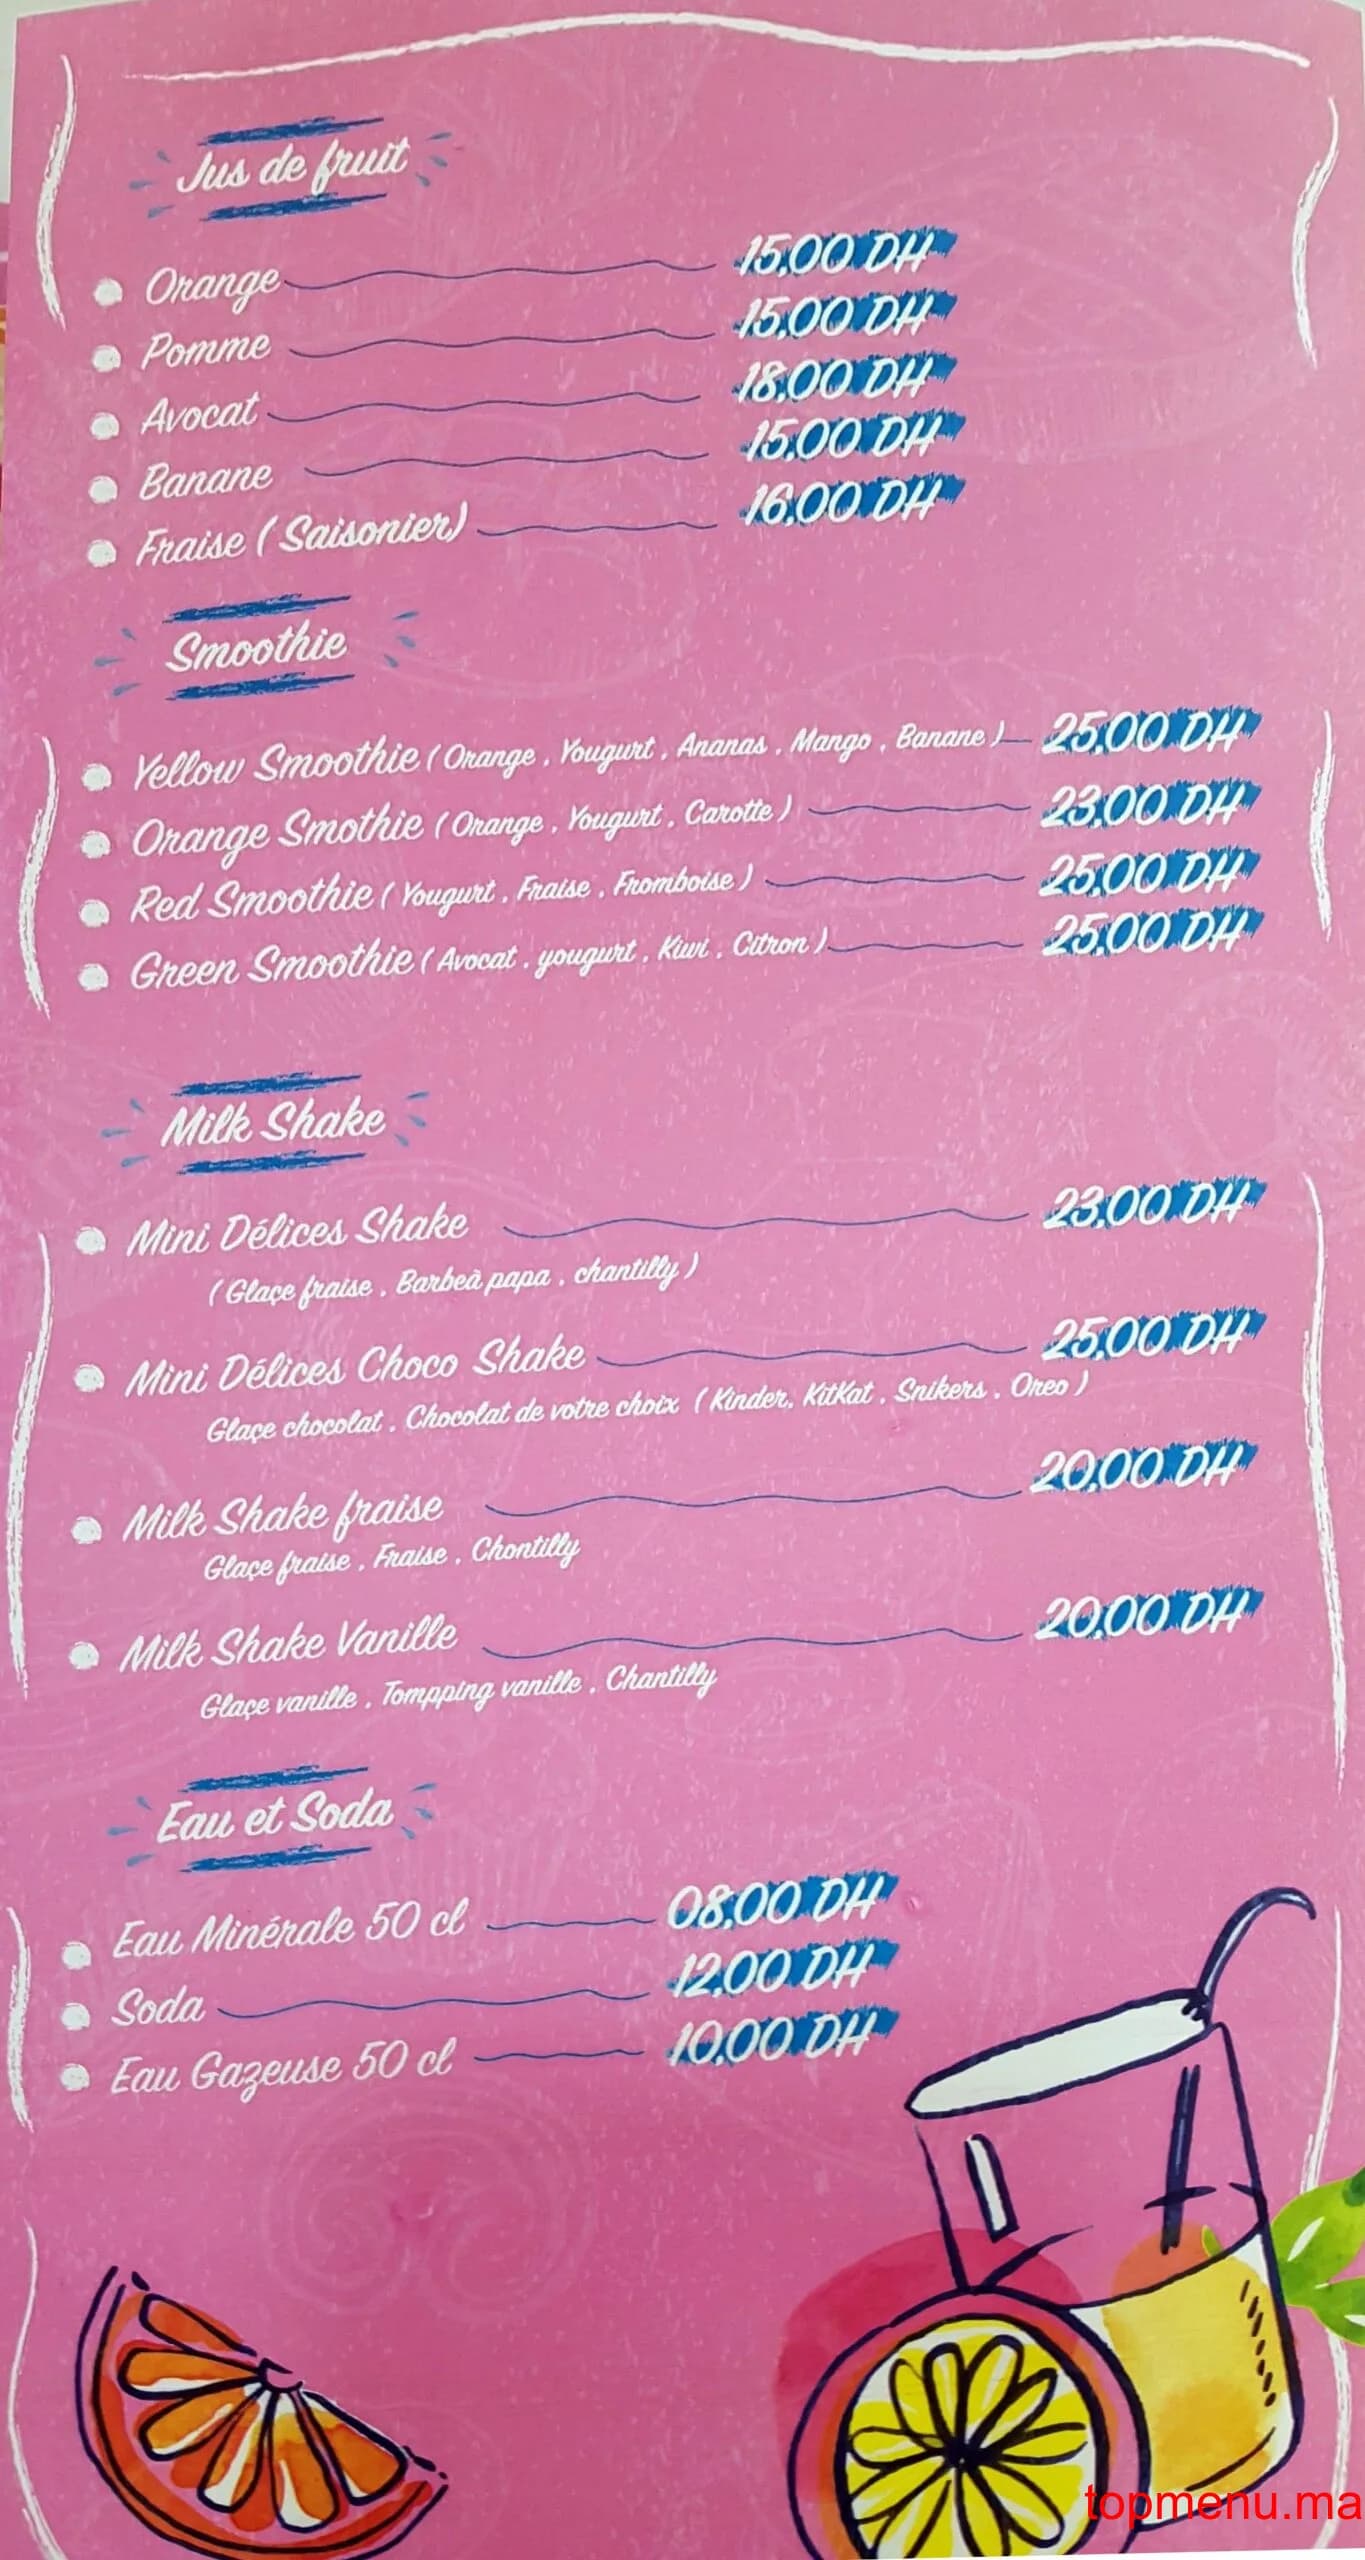 Jus de fruit
Orange 15,00 DH
Pomme 15,00 DH
Avocat 18,00 DH
Banane 15,00 DH
Fraise ( Saisonier) 16,00 DH
Smoothie
Yellow Smoothie ( Orange , Yougurt , Ananas , Mango , Banane ) 25,00 DH
Orange Smothie ( Orange , Yougurt , Carotte ) 23,00 DH
Red Smoothie ( Yougurt , Fraise , Fromboise ) 25,00 DH
Green Smoothie ( Avocat , yougurt , Kiwi , Citron ) 25,00 DH
Milk Shake
Mini Délices Shake 23,00 DH
( Glaçe fraise , Barbeà papa , chantilly )
Mini Délices Choco Shake 25,00 DH
Glaçe chocolat , Chocolat de votre choix ( Kinder, KitKat , Snikers , Oreo )
Milk Shake fraise 20,00 DH
Glaçe fraise , Fraise , Chontilly
Milk Shake Vanille 20,00 DH
Glaçe vanille , Tompping vanille , Chantilly
Eau et Soda
Eau Minérale 50 cl 08,00 DH
Soda 12,00 DH
Eau Gazeuse 50 cl 10,00 DH
topmenu.ma